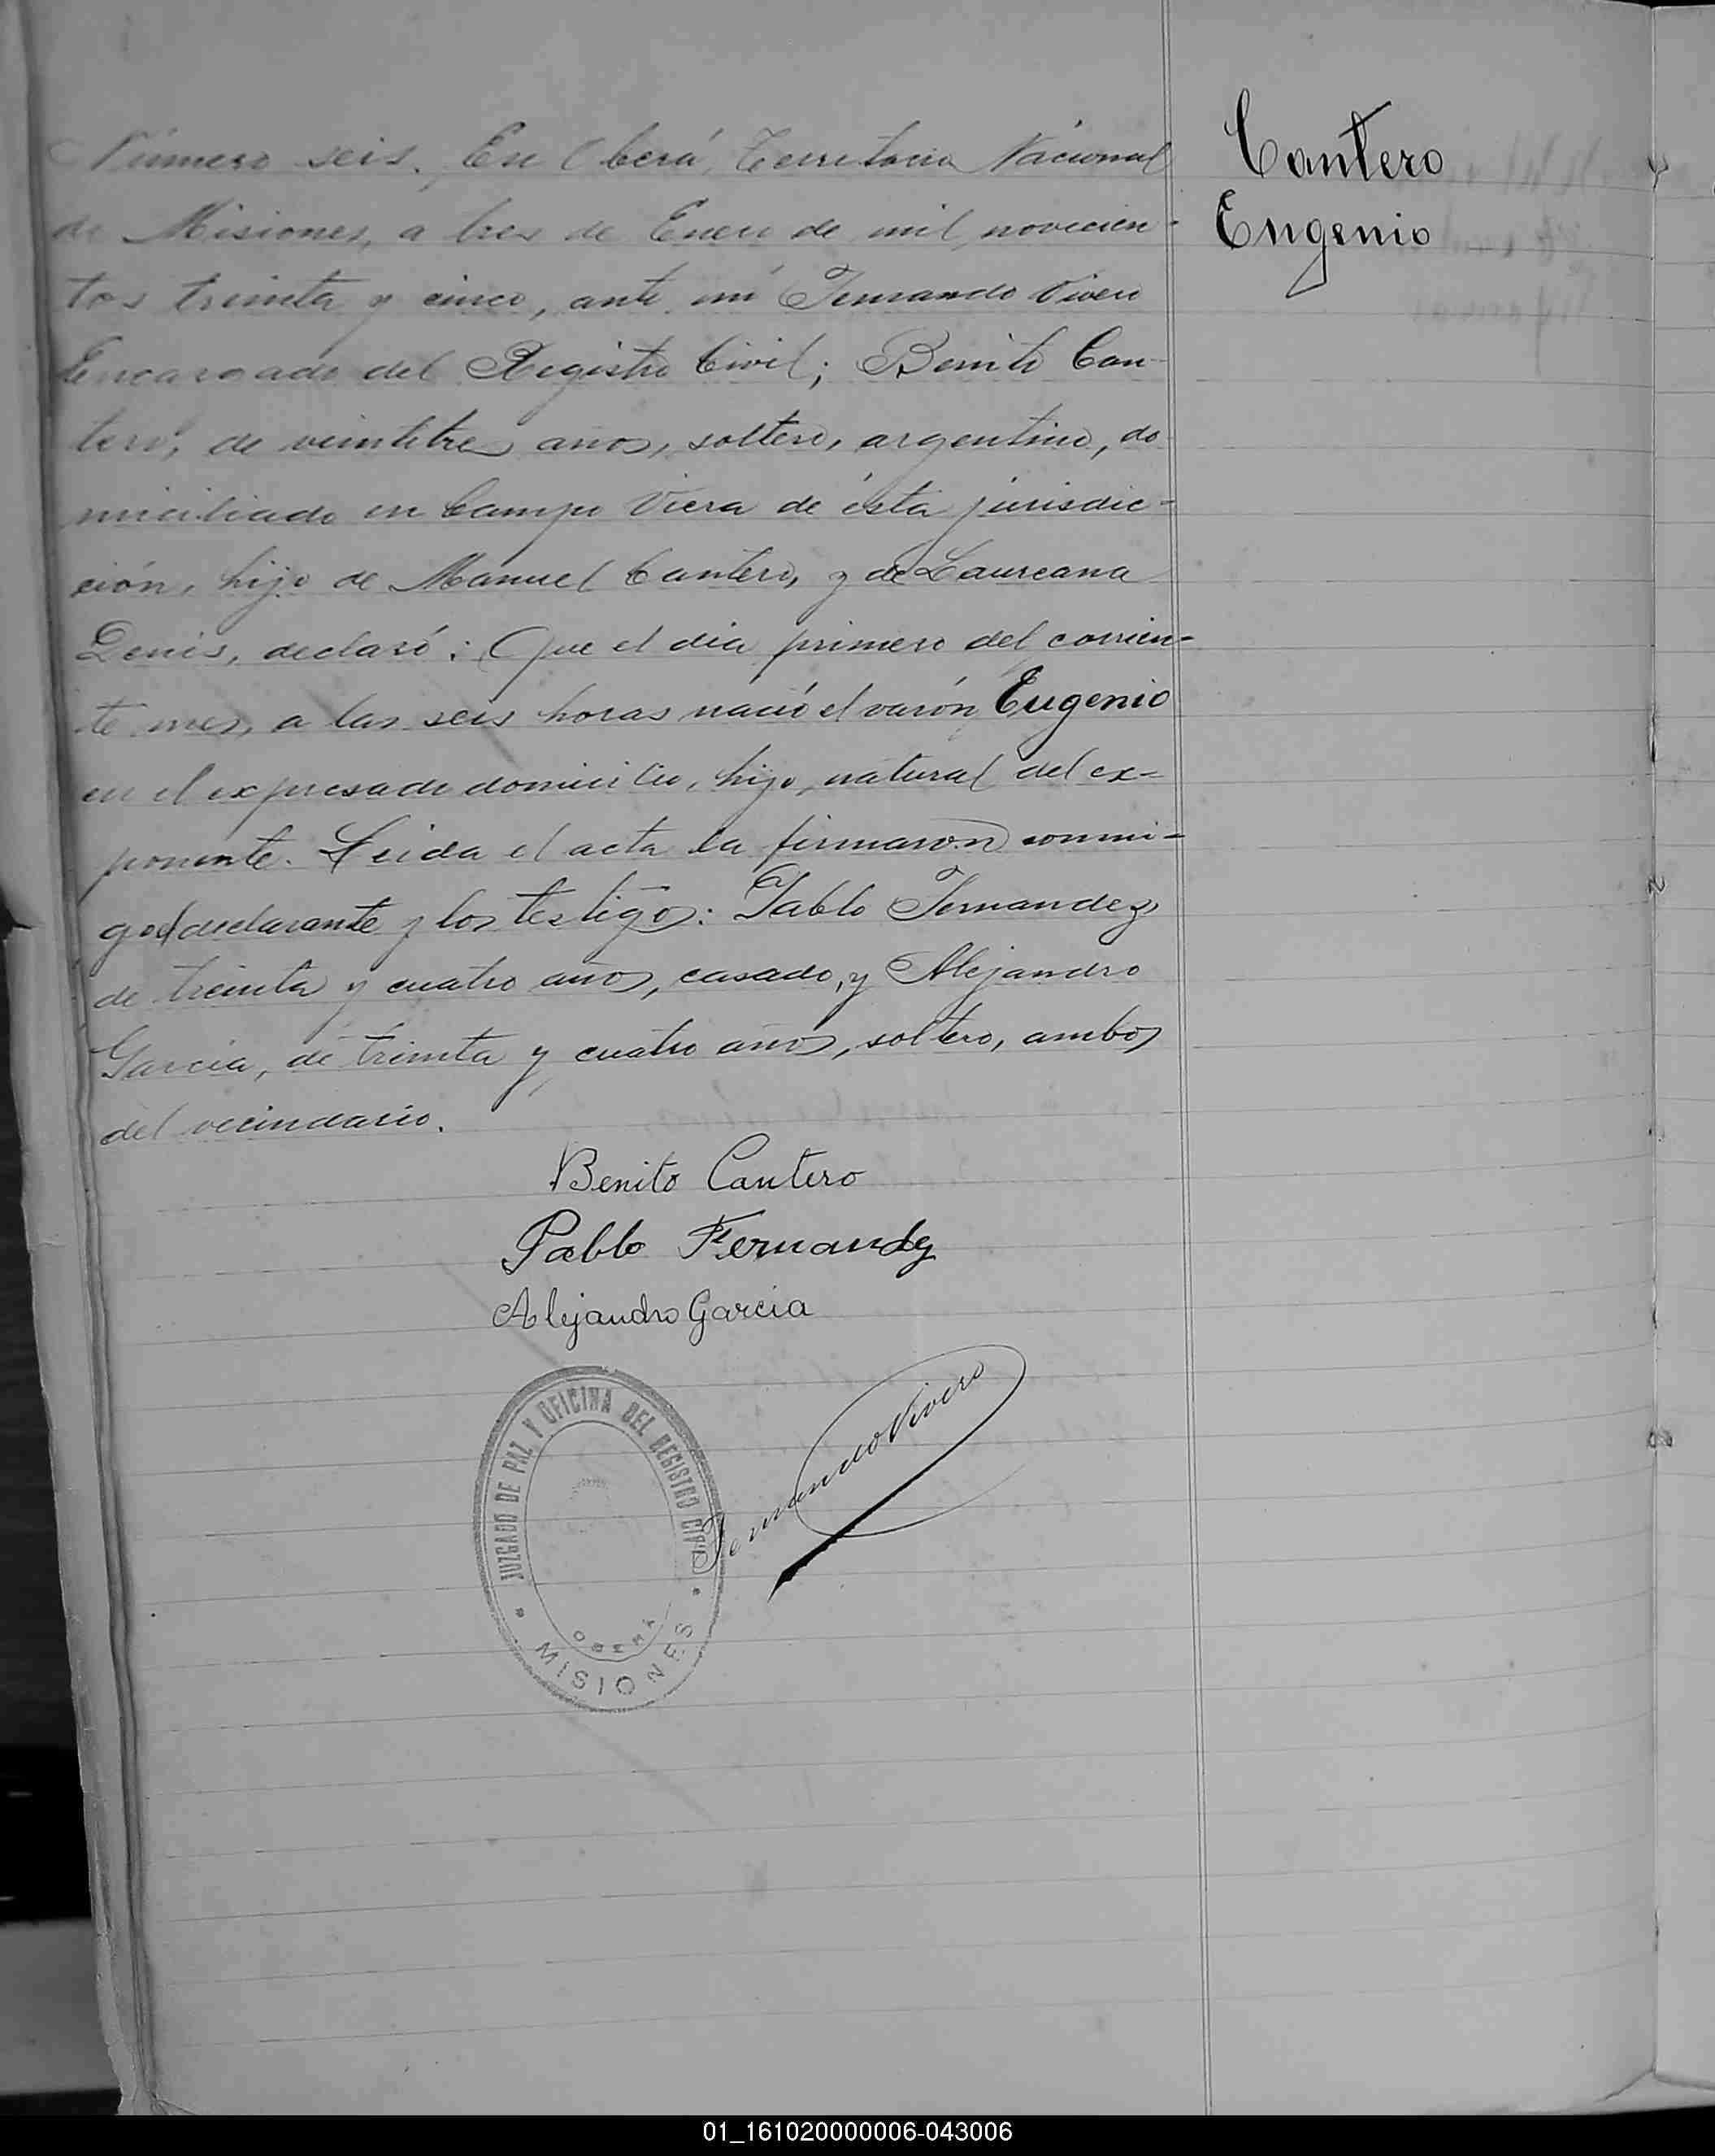 Número seis. En Oberá, Territorio Nacional
de Misiones, a tres de Enero de mil novecien-
tos treinta y cinco, ante mí Fernando Vivero
Encargado del Registro Civil; Benito Can-
tero, de veintitres años, soltero, argentino, do
miciliado en Campo Viera de ésta jurisdic-
ción, hijo de Manuel Cantero, y de Laureana
Denis, declaró: Que el día primero del corrien-
te mes, a las seis horas nació el varón Eugenio
en el expresado domicilio, hijo natural del ex-
ponente. Leida el acta la firmaron conmi-
go el declarante y los testigos: Pablo Fernandez,
de treinta y cuatro años, casado, y Alejandro
García, de treinta y cuatro años, soltero, ambos
del vecindario.
Cantero
Eugenio
Benito Cantero
Pablo Fernandez
Alejandro Garcia
Fernando Vivero
JUZGADO DE PAZ Y OFICINA DEL REGISTRO CIVIL
OBERÁ
* MISIONES *
01_161020000006-043006